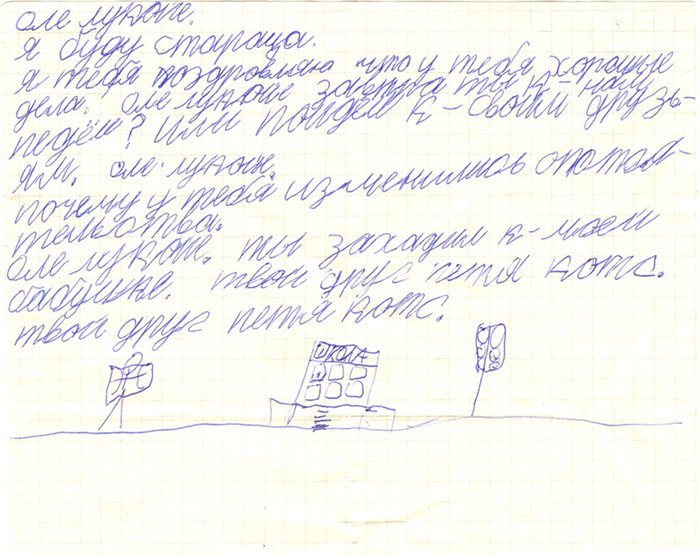 оле лукоие.
я буду стараца.
я тебя поздровляю что у тебя хорошие
дела. оле лукоие завтра ты к-нам
педёш? или пойдёш к-своим друзь-
ям. оле лукоие.
почему у тебя изменились
тельства.
оле лукоие. ты заходил к-моей
бабушке. твой друг петя котс.
твой друг петя котс.
ШКОЛА